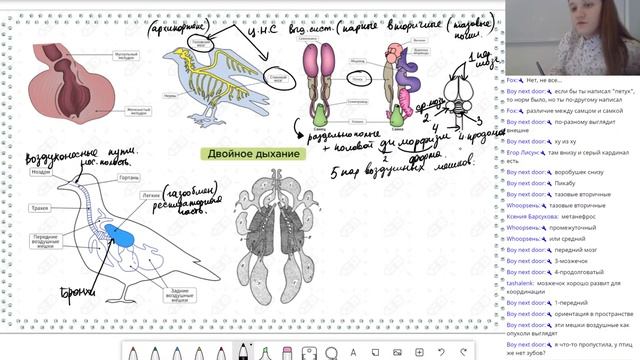 (архикортекс)
Ц.Н.С
выд. сист. (парные вторичные (тазовые)
почки.
Мускульный
желудок
Железистый
желудок
Головной
мозг
Спинной
мозг
Нервы
Семенники
Почка
Семяпровод
Клоака
Самец
Яичник
Воронка
яйцевода
Самка
1 пер.
мозг
2
3
4
раздельнополые
+ половой диморфизм
2 форма
4 продолг
5 пар воздушных мешков.
Двойное дыхание
воздухоносные пути.
нос. полость.
Ноздри
Гортань
Трахея
Легкие
(газообмен)
респираторная
часть.
Передние
воздушные
мешки
Задние
воздушные
мешки
бронхи
Fox: Нет, не все...
Boy next door: если бы ты написал "петух", то норм было, но ты по-другому написал
Fox: различие между самцом и самкой
Boy next door: по-разному выглядит внешне
Boy next door: ху из ху
Егор Лисун: там внизу и серый кардинал есть
Boy next door: воробушек снизу
Boy next door: Пикабу
Boy next door: тазовые вторичные
Whoopsень: тазовые вторичные
Ксения Барсукова: метанефрос
Whoopsень: промежуточный
Whoopsень: или средний
Boy next door: передний мозг
Boy next door: 3-мозжечок
Boy next door: 4-продолговатый
tashalenk: мозжечок хорошо развит для координации
Boy next door: 1-передний
Boy next door: ориентация в пространстве
Boy next door: эти мешки воздушные как опухоли выглядят
Boy next door: я что-то пропустила, у птиц же нет зубов?